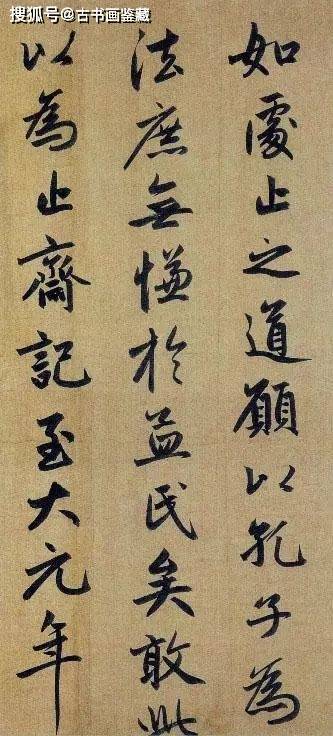 搜狐号@古书画鉴藏
如處止之道願以孔子為
法庶無慊於益民矣敢此
以為止齋記至大元年